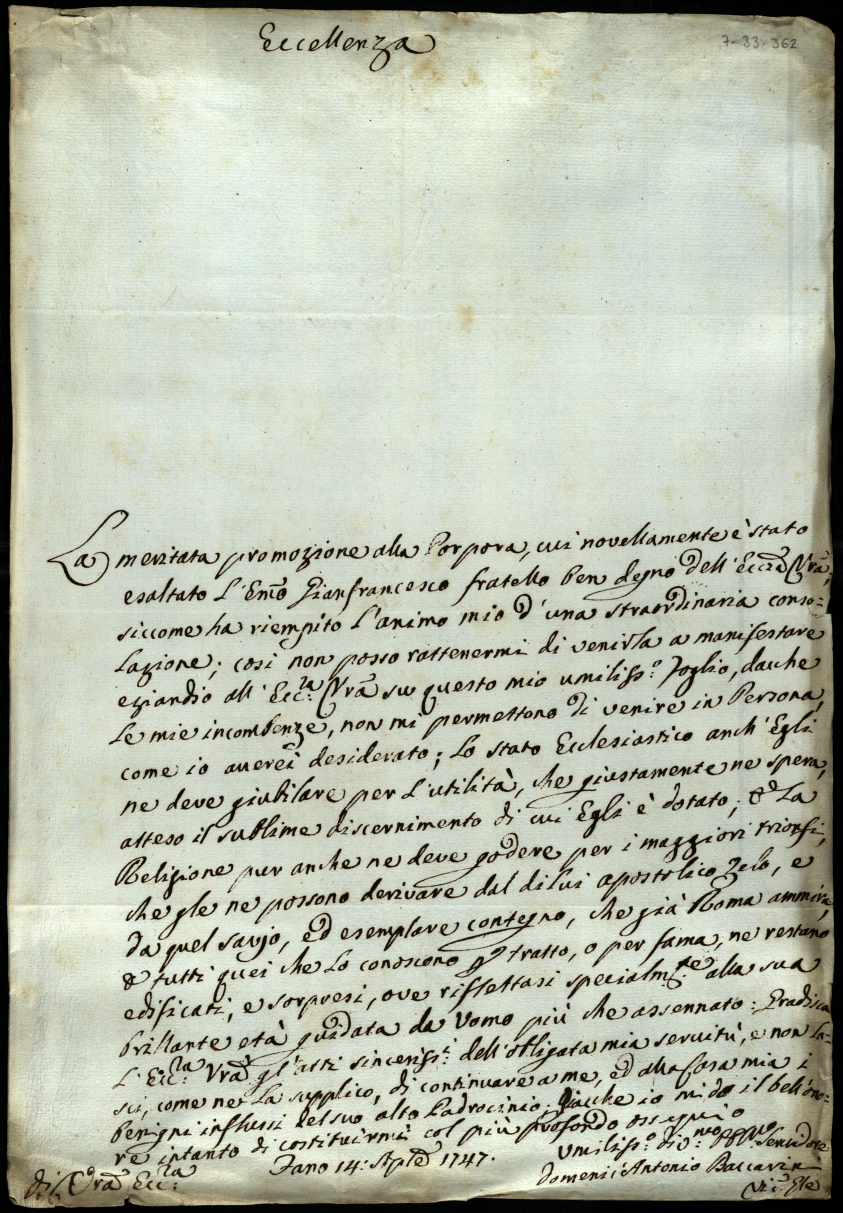 Eccellenza
7-33-362
La meritata promozione alla Porpora, cui novellamente è stato
esaltato l'Emo Gianfrancesco fratello ben degno dell'Ecc:za Vra,
siccome ha riempito l'animo mio d'una straordinaria conso=
lazione; così non posso rattenermi di venirla a manifestare
eziandio all'Ecc:za Vra su questo mio umiliss:o foglio, dacche
le mie incombenze, non mi permettono di venire in Persona,
come io averei desiderato; Lo stato Ecclesiastico anch'Egli
ne deve giubilare per l'utilità, che giustamente ne spera,
atteso il sublime discernimento di cui Egli è dotato; & La
Religione pur anche ne deve godere per i maggiori trionfi,
che gle ne possono derivare dal dilui apostolico Zelo, e
da quel savjo, ed esemplare contegno, che già Roma ammira,
& tutti quei che lo conoscono p tratto, o per fama, ne restano
edificati, e sorpresi, ove riflettasi specialm:te alla sua
brillante età guidata da Uomo più che assennato: Gradisca
l'Ecc:za Vra gl'atti sinceriss:i dell'obligata mia servitù, e non la=
sci, come ne la supplico, di continuare a me, ed alla Casa mia i
benigni influssi del suo alto Padrocinio; Giacche io mi do il bell'ono=
re intanto di costituirmi col più profondo ossequio
di Vra Ecc:za
Fano 14: Aple 1747.
Umiliss:o Di:vmo Servidore
Domenic'Antonio Baccarin